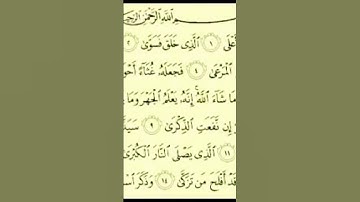 ـمِ ٱللَّهِ ٱلرَّحْمَٰنِ ٱلرَّحِيـ
ـعْلَى ١ ٱلَّذِى خَلَقَ فَسَوَّىٰ ٢
ٱلْمَرْعَىٰ ٤ فَجَعَلَهُۥ غُثَآءً أَحْوَ
مَا شَآءَ ٱللَّهُ ۚ إِنَّهُۥ يَعْلَمُ ٱلْجَهْرَ وَمَا
إِن نَّفَعَتِ ٱلذِّكْرَىٰ ٩ سَيَذَّ
١١ ٱلَّذِى يَصْلَى ٱلنَّارَ ٱلْكُبْرَىٰ
قَدْ أَفْلَحَ مَن تَزَكَّىٰ ١٤ وَذَكَرَ ٱسْـ